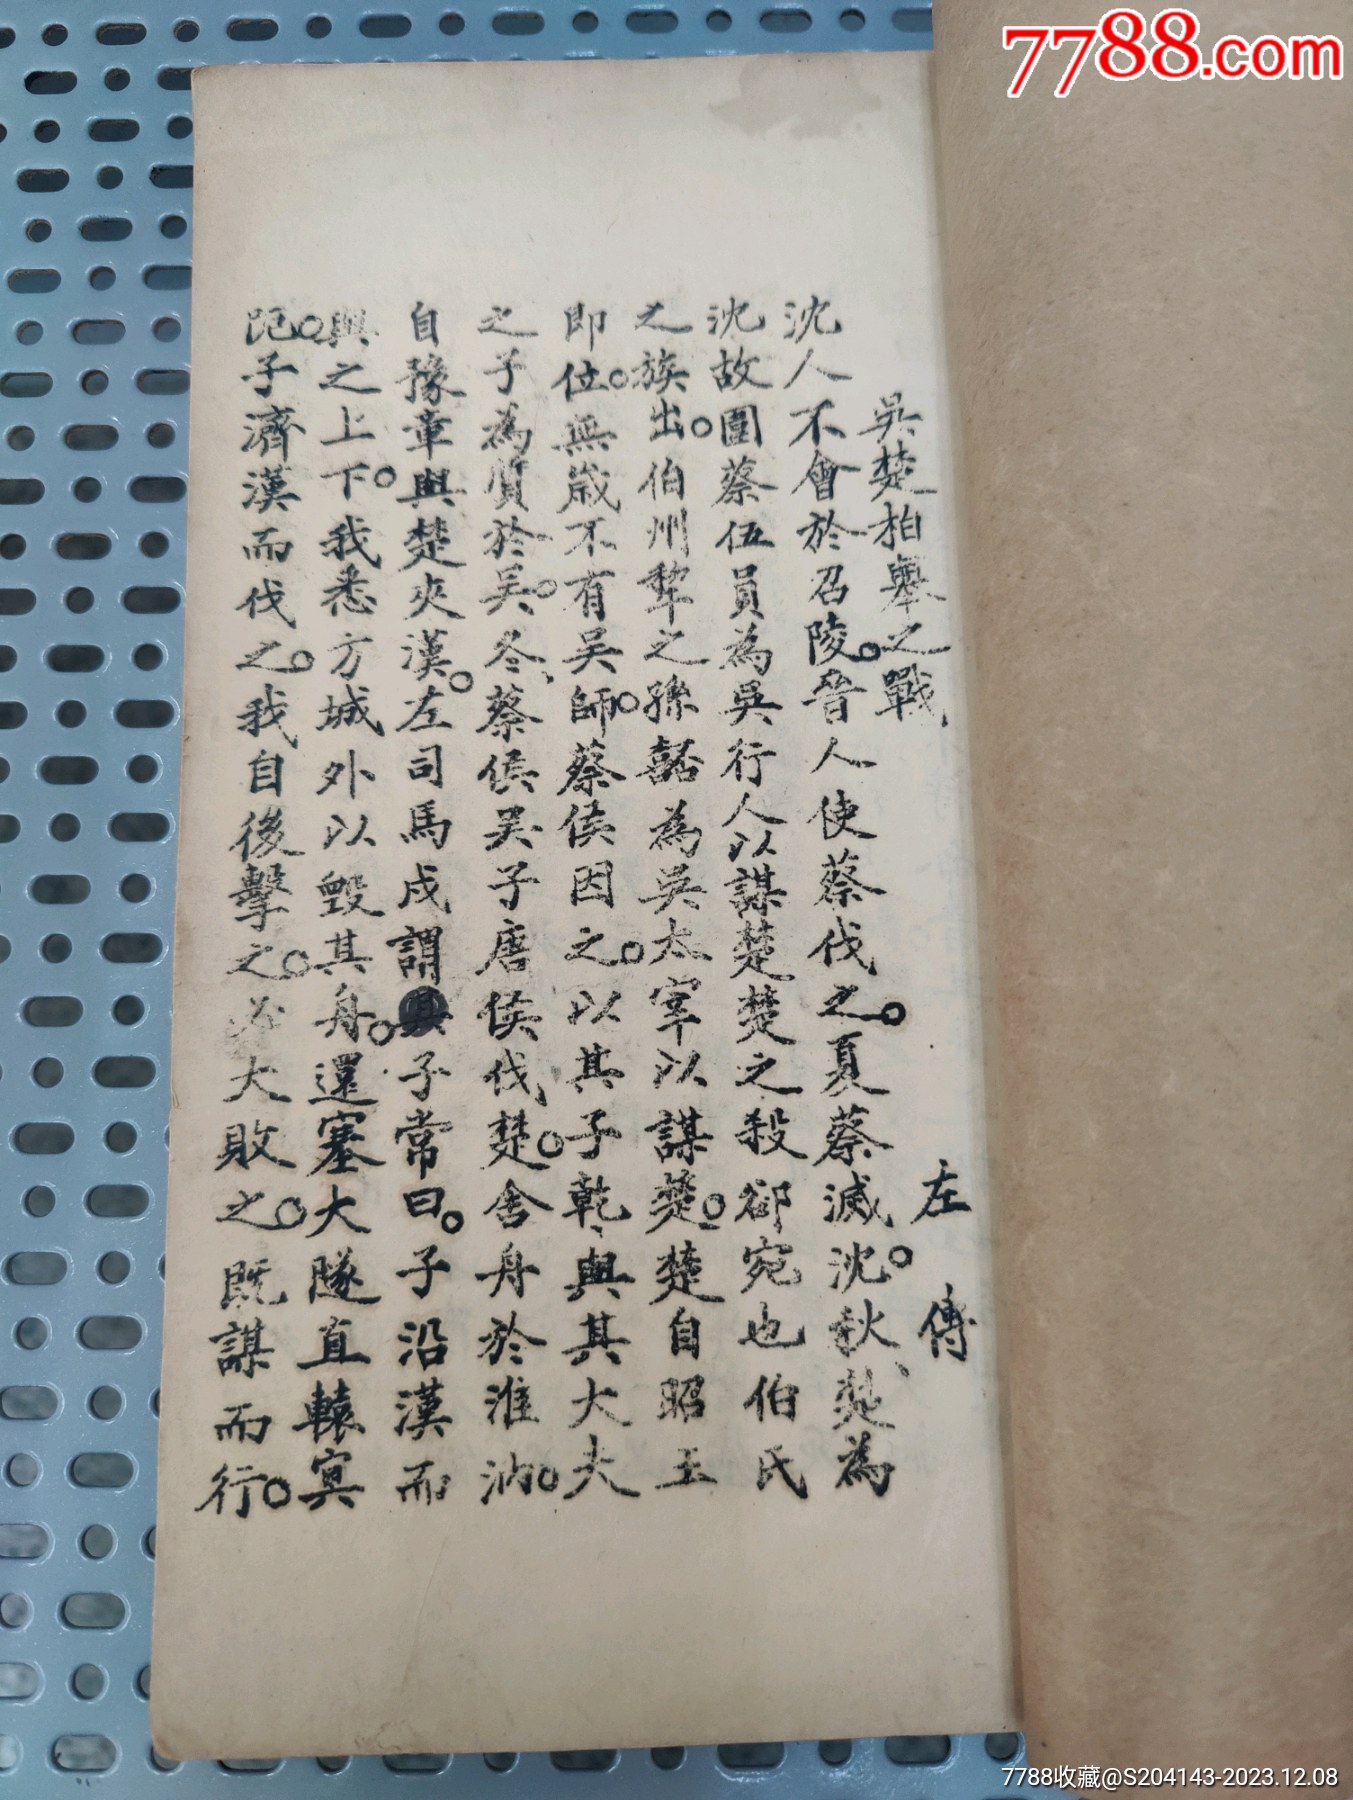 7788.com
吳楚柏舉之戰
左傳
沈人不會於召陵。晉人使蔡伐之。夏蔡滅沈。秋、楚為
沈故圍蔡伍員為吳行人以謀楚楚之殺郤宛也伯氏
之族出。伯州犂之孫嚭為吳太宰以謀楚。楚自昭王
即位。無歲不有吳師。蔡侯因之。以其子乾、與其大夫
之子為質於吳。冬、蔡侯吳子唐侯伐楚。舍舟於淮汭。
自豫章與楚夾漢。左司馬戌謂子常曰。子沿漢而
與之上下。我悉方城外以毀其舟。還塞大隧直轅冥
阨。子濟漢而伐之。我自後擊之。必大敗之。既謀而行。
7788收藏@S204143-2023.12.08